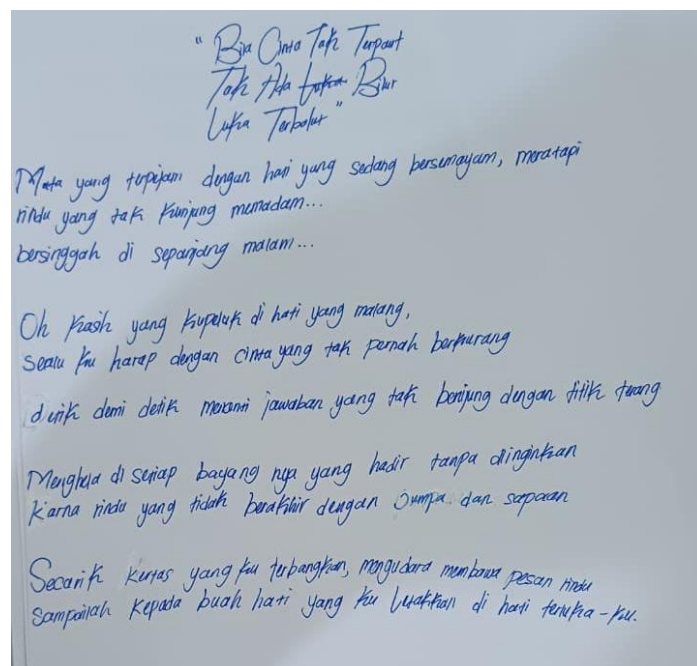 " Bila Cinta Tak Terpaut
Tak Ada Luka Bilur
Luka Terbalut "
Mata yang terpejam dengan hari yang sedang bersemayam, meratapi
rindu yang tak kunjung memadam...
bersinggah di sepanjang malam...
Oh kasih yang kupeluk di hati yang malang,
selalu ku harap dengan cinta yang tak pernah berkurang
detik demi detik menanti jawaban yang tak berujung dengan titik terang
Menghela di setiap bayang nya yang hadir tanpa diinginkan
Karna rindu yang tidak berakhir dengan Jumpa dan sapaan
Secarik kertas yang ku terbangkan, mengudara membawa pesan rindu
Sampailah kepada buah hati yang ku letakkan di hati terluka-ku.